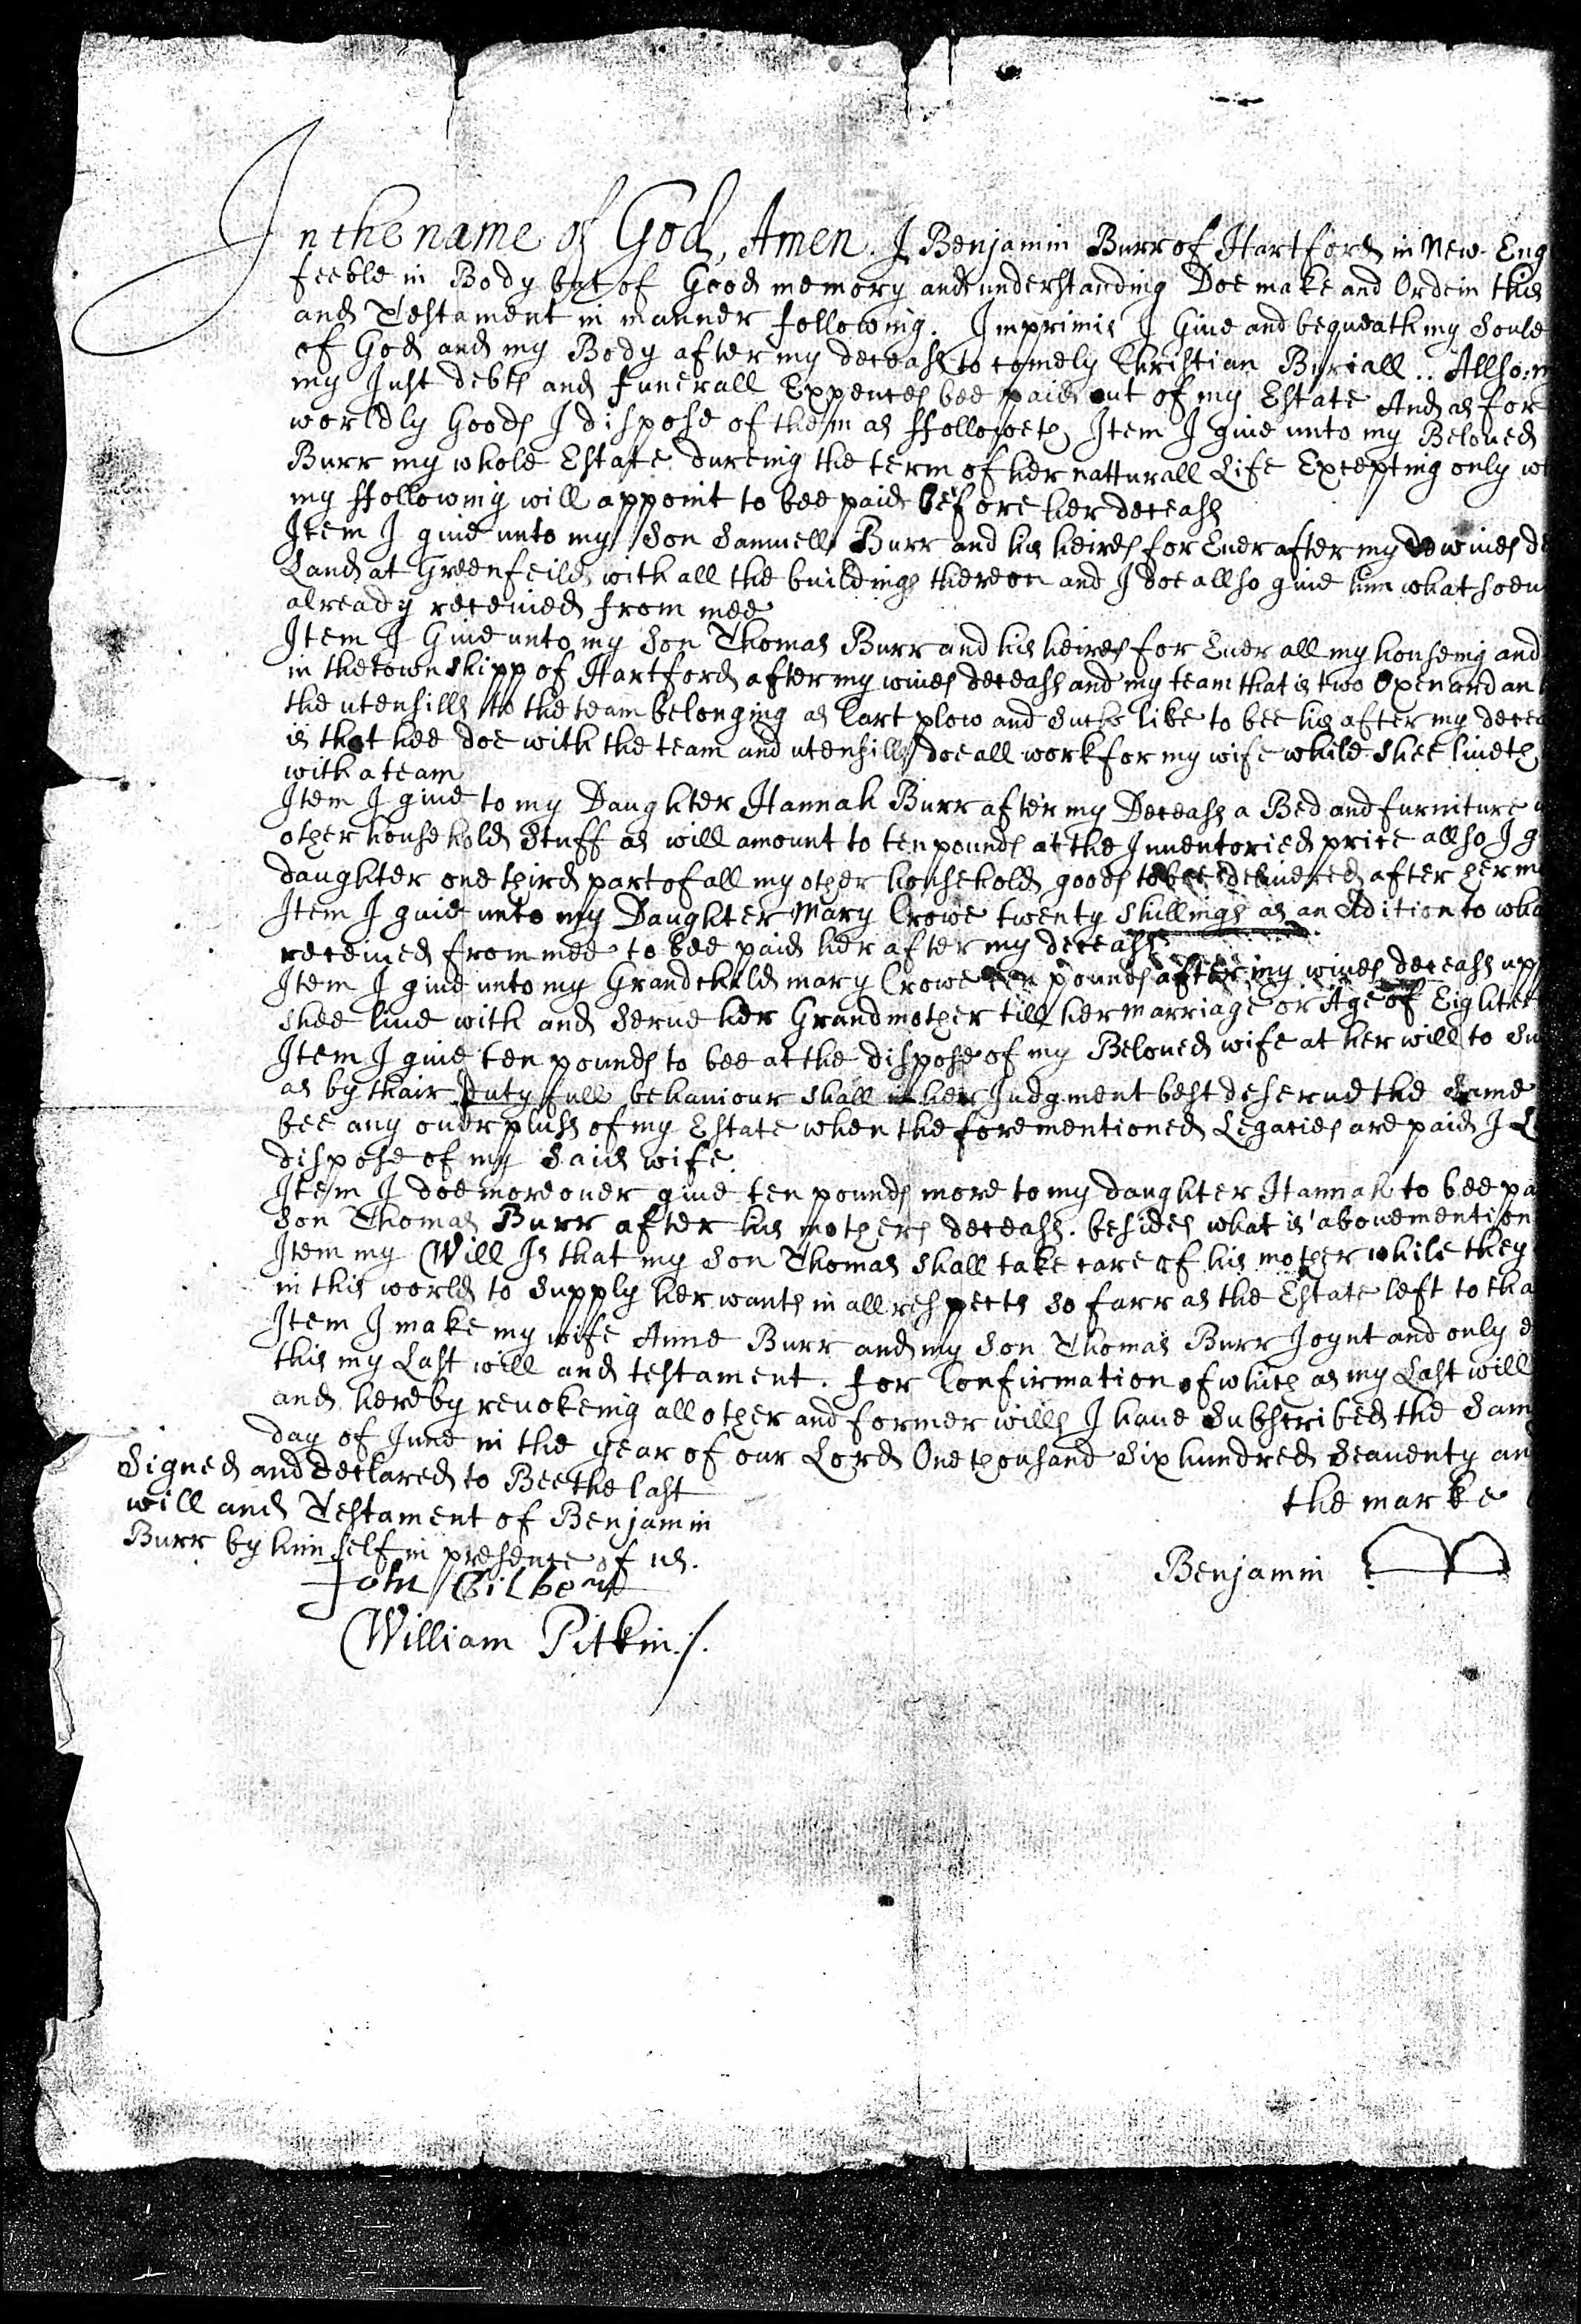 In the name of God, Amen. I Benjamin Burr of Hartford in New-Eng
feeble in Body but of Good memory and understanding Doe make and Ordein this
and Testament in manner following. Imprimis I Giue and bequeath my Soule
of God and my Body after my deceass to comely Christian Buriall .. Allso
my Just debts and funerall Expences bee paid out of my Estate And as for
worldly Goods I dispose of them as ffolloweth Item I giue unto my Beloued
Burr my whole Estate dureing the term of her natturall Life Excepting only
my ffollowing will appoint to bee paid before her deceass
Item I giue unto my Son Samuell Burr and his heires for Euer after my wiues
Land at Greenfeild with all the buildings thereon and I doe allso giue him whatsoeu
already receiued from mee
Item I Giue unto my Son Thomas Burr and his heires for Euer all my houseing and
in the townshipp of Hartford after my wiues deceass and my team that is two Oxen and an
the utensills to the team belonging as Cart plow and Such like to bee his after my decea
is that hee doe with the team and utensills doe all work for my wife while Shee liueth
with a team
Item I giue to my Daughter Hannah Burr after my Deceass a Bed and furniture
other household Stuff as will amount to ten pounds at the Inuentoried price allso I g
daughter one third part of all my other household goods to bee deliuered after her m
Item I giue unto my Daughter Mary Crowe twenty Shillings as an Adition to wha
receiued from mee to bee paid her after my deceass
Item I giue unto my Grandchild mary Crowe ten pounds after my wiues deceass up
Shee liue with and Serue her Grandmother till her marriage or Age of Eightee
Item I giue ten pounds to bee at the dispose of my Beloued wife at her will to Su
as by thair Dutyfull behauiour Shall in her Judgment best deserue the Same
bee any ouerpluss of my Estate when the forementioned Legacies are paid I
dispose of my Said wife.
Item I doe moreouer giue ten pounds more to my daughter Hannah to bee pa
Son Thomas Burr after his mothers deceass. besides what is abouemention
Item my Will Is that my Son Thomas Shall take care of his mother while they
in this world to Supply her wants in all respects So farr as the Estate left to tha
Item I make my wife Anne Burr and my Son Thomas Burr Joynt and only
this my Last will and testament. for Confirmation of which as my Last will
and hereby reuokeing all other and former wills I haue Subscribed the Sam
day of June in the year of our Lord One thousand Six hundred Seauenty an
Signed and Declared to Bee the last
will and Testament of Benjamin
Burr by himself in presence of us.
John Gilbert
William Pitkin./.
the marke
Benjamin